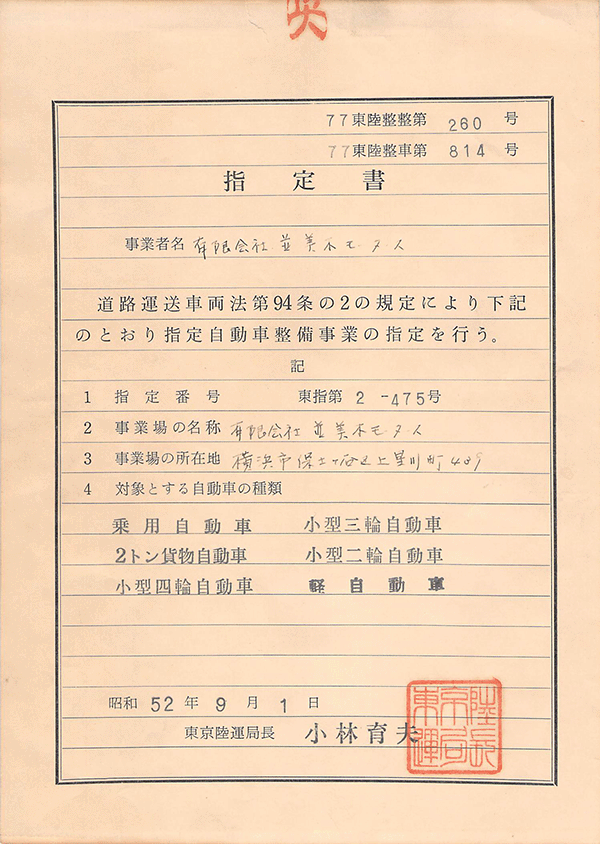 77東陸整整第 260 号
77東陸整車第 814 号
指定書
事業者名 有限会社並美木モータース
道路運送車両法第94条の2の規定により下記
のとおり指定自動車整備事業の指定を行う。
記
1 指定番号 東指第 2-475号
2 事業場の名称 有限会社並美木モータース
3 事業場の所在地 横浜市保土ヶ谷区上星川町489
4 対象とする自動車の種類
乗用自動車 小型三輪自動車
2トン貨物自動車 小型二輪自動車
小型四輪自動車 軽自動車
昭和 52 年 9 月 1 日
東京陸運局長 小林育夫